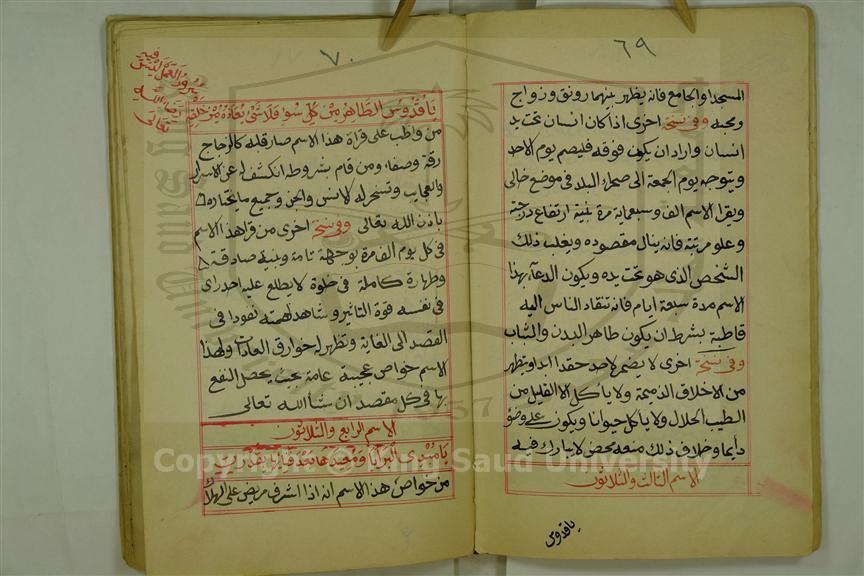 ٦٩
المسجد او الجامع فانه يظهر بينهما رونق وزواج
ومحبه وفي نسخة اخرى اذا كان انسان تحت يد
انسان واراد ان يكون فوقه فليصم يوم الاحد
ويتوجه يوم الجمعة الى صحراء البلد في موضع خالى
ويقرا الاسم الف وسبعماية مرة بنية ارتفاع درجته
وعلو مرتبته فانه ينال مقصوده ويغلب ذلك
الشخص الذى هو تحت يده ويكون الدعآء بهذا
الاسم مدة سبعة ايام فانه تنقاد الناس اليه
قاطبة بشرط ان يكون طاهر البدن والثياب
وفي نسخة اخرى لا يضمر لاحد حقد ابدا وتطهر
من الاخلاق الذميمة ولا ياكل الا القليل من
الطيب الحلال ولا ياكل حيوانا ويكون على وضؤ
دايما وخلاف ذلك منعه محض لا يبارك فيه
الاسم الثالث والثلاثون
ياقدوس
٧٠
يا قدوس الطاهر من كل سوء فلا شئ يعادله من خلقه
من واظب على قراة هذا الاسم صار قلبه كالزجاج
رقة وصفاء ومن قام بشروطه انكشف له عن الاسرار
والعجايب وتسخر له الانس والجن وجميع ما يختاروه
باذن الله تعالى وفي نسخة اخرى من قرا هذا الاسم
في كل يوم الف مرة بوجهة تامة وبنية صادقة
وطهارة كاملة في خلوة لا يطلع عليه احد راى
في نفسه قوة التاثير وشاهد لهمته نفوذا في
القصد الى الغاية وتظهر له خوارق العادات ولهذا
الاسم خواص عجيبة عامة بحيث يحصل النفع
بها في كل مقصد ان شا الله تعالى
الاسم الرابع والثلاثون
يا مبدى البرايا ومعيدها بعد فنايها بقدرته
من خواص هذا الاسم انه اذا اشرف مريض على الهلاك
Copyright © King Saud University
1957